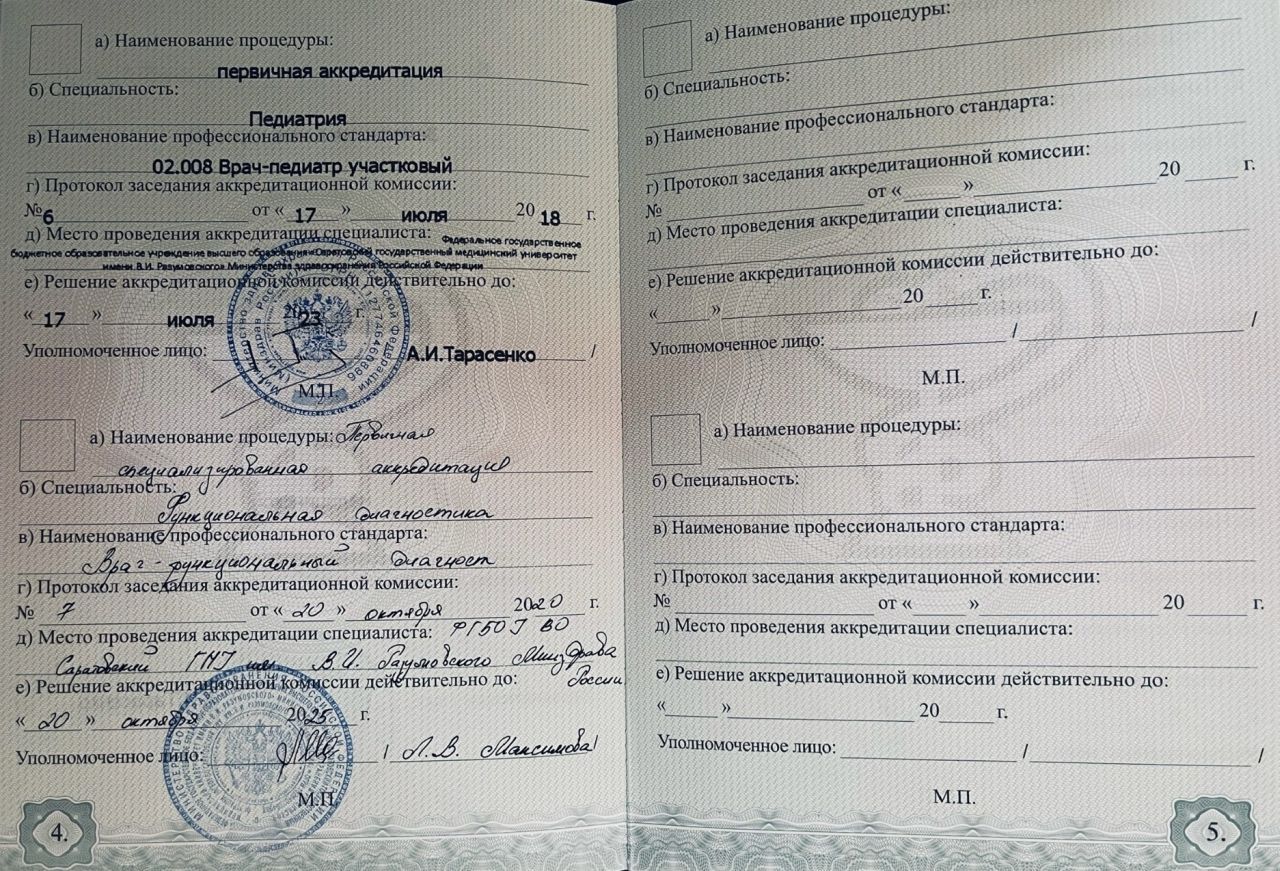 а) Наименование процедуры:
первичная аккредитация
б) Специальность:
Педиатрия
в) Наименование профессионального стандарта:
02.008 Врач-педиатр участковый
г) Протокол заседания аккредитационной комиссии:
№ 6 от « 17 » июля 20 18 г.
д) Место проведения аккредитации специалиста: Федеральное государственное
бюджетное образовательное учреждение высшего образования «Саратовский государственный медицинский университет
имени В.И. Разумовского» Министерства здравоохранения Российской Федерации
е) Решение аккредитационной комиссии действительно до:
« 17 » июля 2023 г.
Уполномоченное лицо: А.И.Тарасенко /
М.П.
а) Наименование процедуры: Первичная
специализированная аккредитация
б) Специальность:
Функциональная диагностика
в) Наименование профессионального стандарта:
Врач-функциональный диагност
г) Протокол заседания аккредитационной комиссии:
№ 7 от « 20 » октября 2020 г.
д) Место проведения аккредитации специалиста: ФГБОУ ВО
Саратовский ГМУ им. В.И. Разумовского Минздрава
е) Решение аккредитационной комиссии действительно до: России
« 20 » октября 2025 г.
Уполномоченное лицо: / Л.В. Максимова/
М.П.
4.
а) Наименование процедуры:
б) Специальность:
в) Наименование профессионального стандарта:
г) Протокол заседания аккредитационной комиссии:
№ от « » 20 г.
д) Место проведения аккредитации специалиста:
е) Решение аккредитационной комиссии действительно до:
« » 20 г.
Уполномоченное лицо: / /
М.П.
а) Наименование процедуры:
б) Специальность:
в) Наименование профессионального стандарта:
г) Протокол заседания аккредитационной комиссии:
№ от « » 20 г.
д) Место проведения аккредитации специалиста:
е) Решение аккредитационной комиссии действительно до:
« » 20 г.
Уполномоченное лицо: / /
М.П.
5.